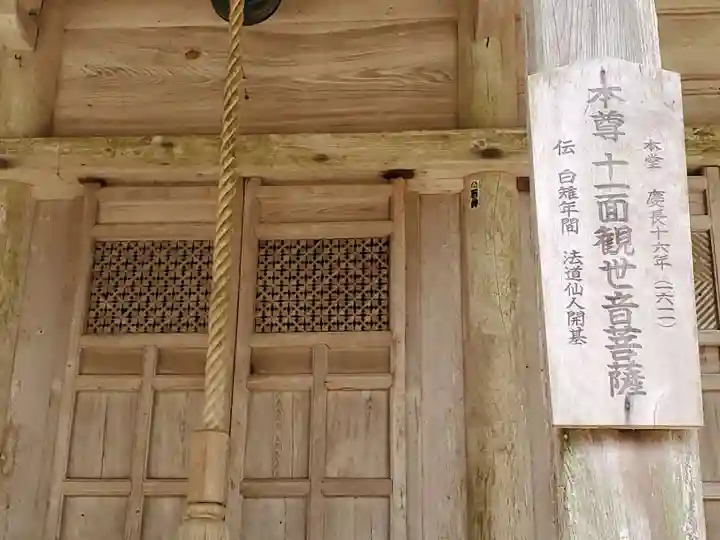 本堂 慶長十六年(一六一一)
本尊 十一面観世音菩薩
伝 白雉年間 法道仙人開基